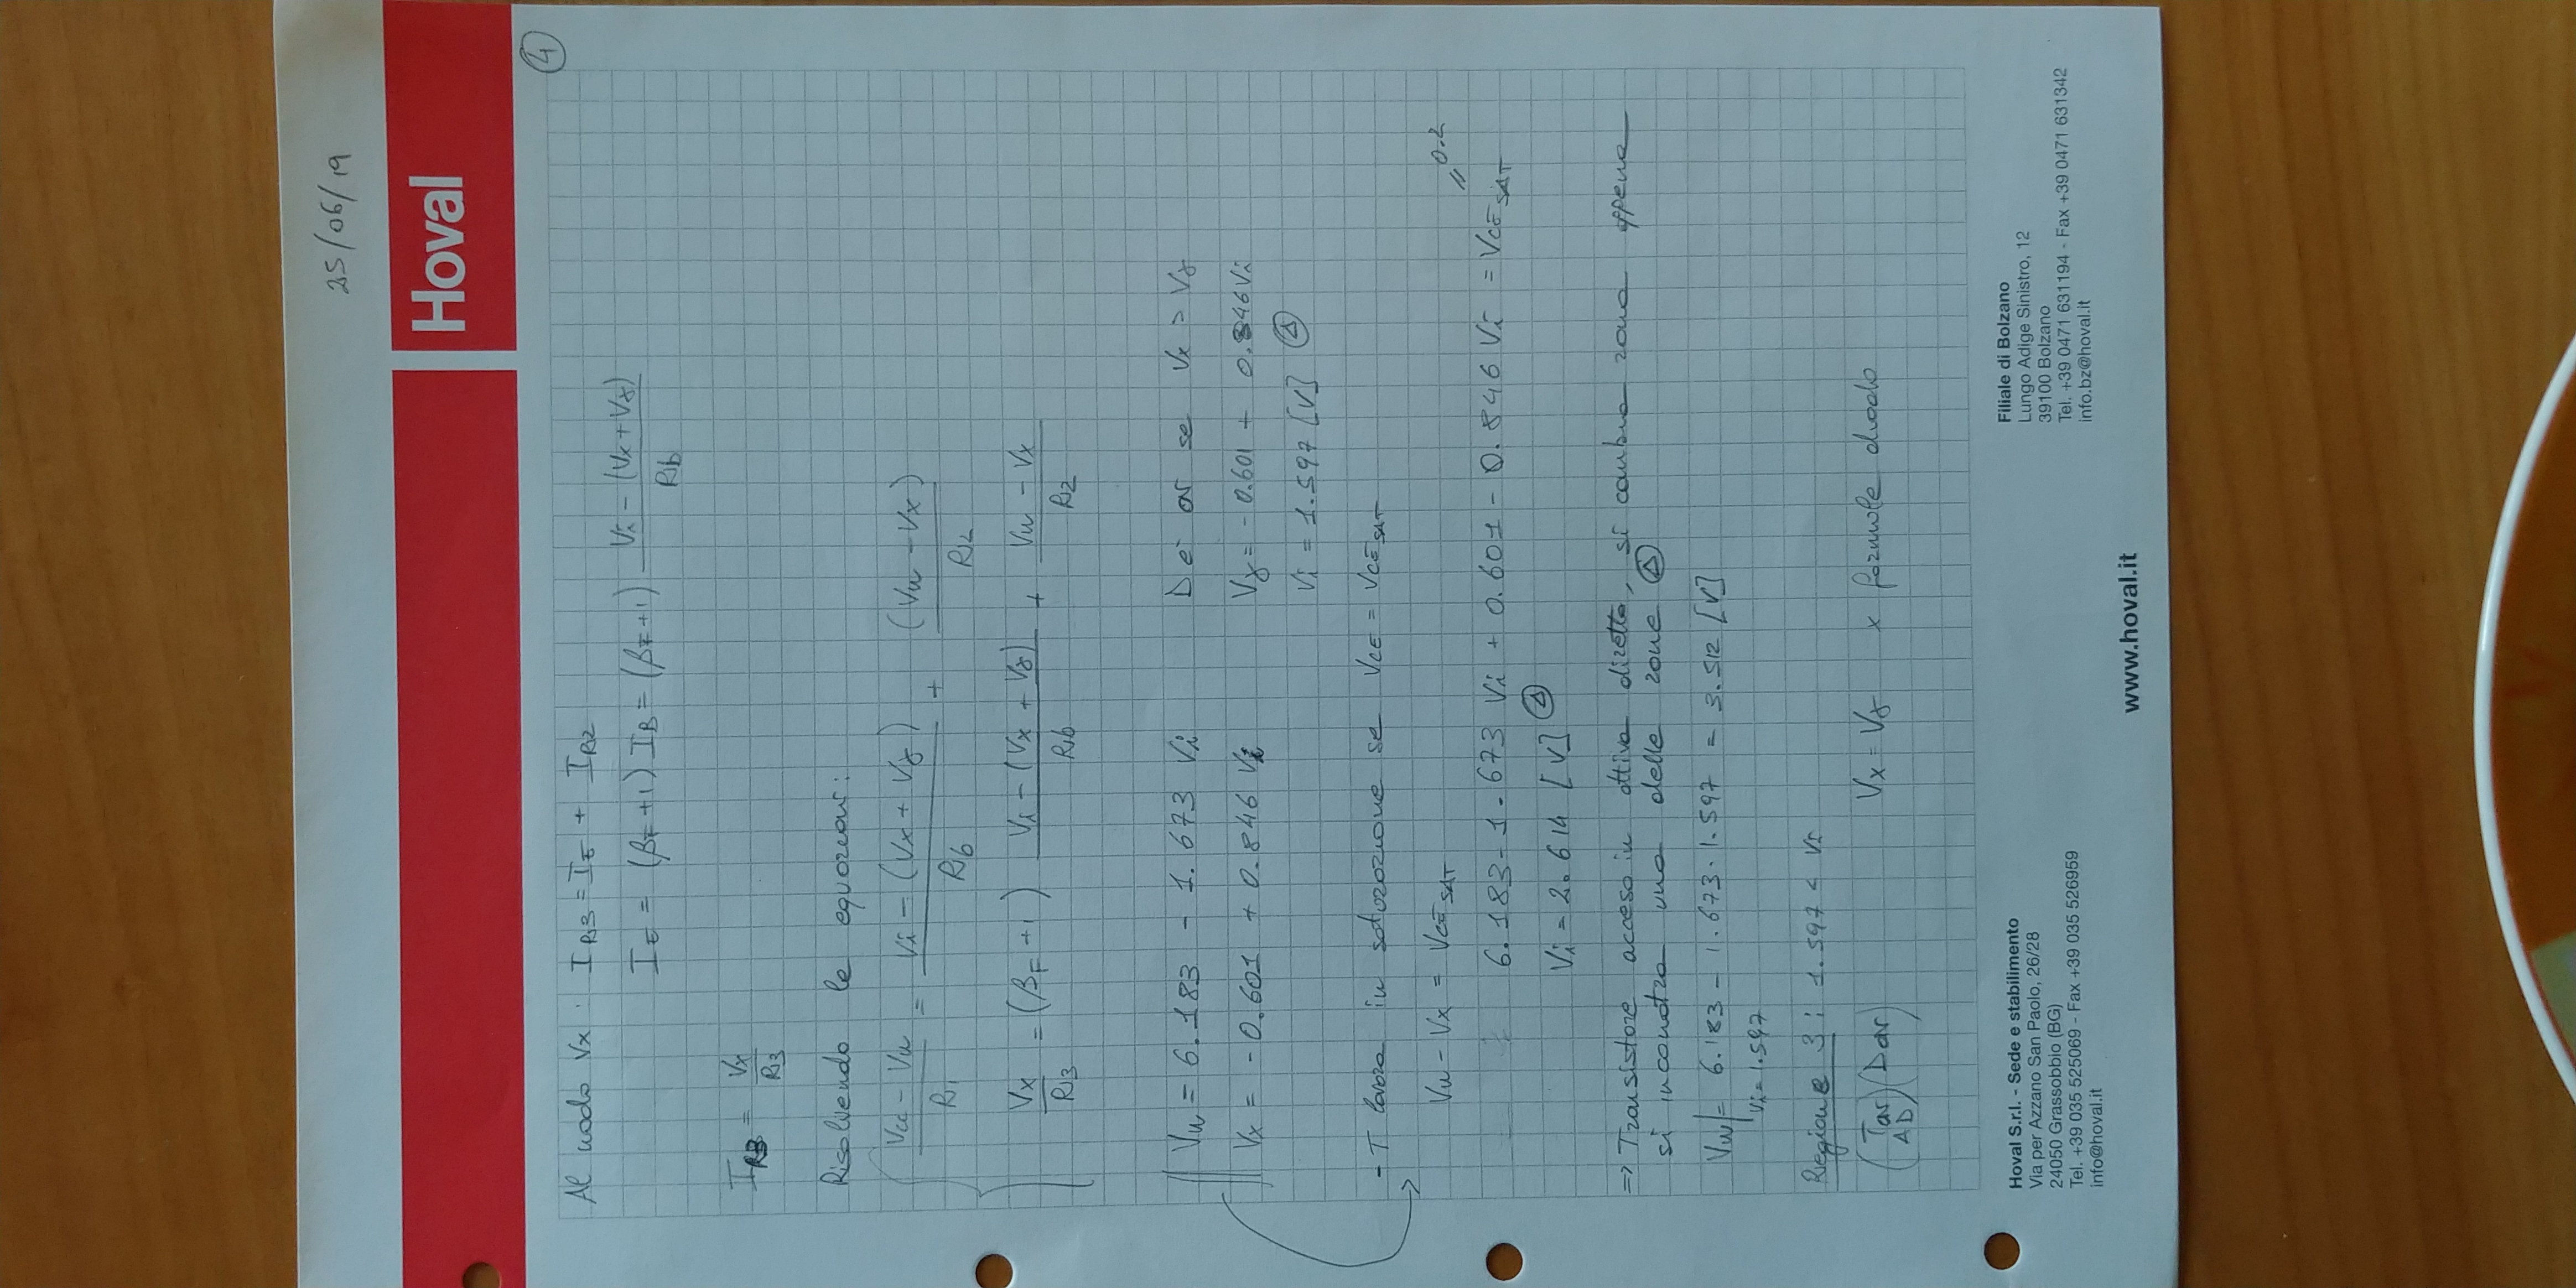 25/06/19
Hoval
4
Al nodo Vx : I_R3 = I_E + I_R2
I_E = (β_F + 1) I_B = (β_F + 1) (Vi - (Vx + Vγ)) / Rb
I_R3 = Vx / R3
Risolvendo le equazioni:
(Vcc - Vu) / R1 = (Vi - (Vx + Vγ)) / Rb + (Vu - Vx) / R2
Vx / R3 = (β_F + 1) (Vi - (Vx + Vγ)) / Rb + (Vu - Vx) / R2
Vu = 6.183 - 1.673 Vi
Vx = -0.601 + 0.846 Vi
D è on se Vx > Vγ
Vγ = -0.601 + 0.846 Vi
Vi = 1.597 [V] Δ
- T lavora in saturazione se VCE = VCE SAT
Vu - Vx = VCE SAT
6.183 - 1.673 Vi + 0.601 - 0.846 Vi = VCE SAT = 0.2
Vi = 2.614 [V] Δ
=> Transistore acceso in attiva diretta, si cambia zona appena
si incontra una delle zone Δ
Vu| = 6.183 - 1.673 · 1.597 = 3.512 [V]
Vi = 1.597
Regione 3 : 1.597 < Vi
(Ton AD) (Don) Vx = Vγ x formule diodo
Hoval S.r.l. - Sede e stabilimento
Via per Azzano San Paolo, 26/28
24050 Grassobbio (BG)
Tel. +39 035 525069 - Fax +39 035 526959
info@hoval.it
Filiale di Bolzano
Lungo Adige Sinistro, 12
39100 Bolzano
Tel. +39 0471 631194 - Fax +39 0471 631342
info.bz@hoval.it
www.hoval.it